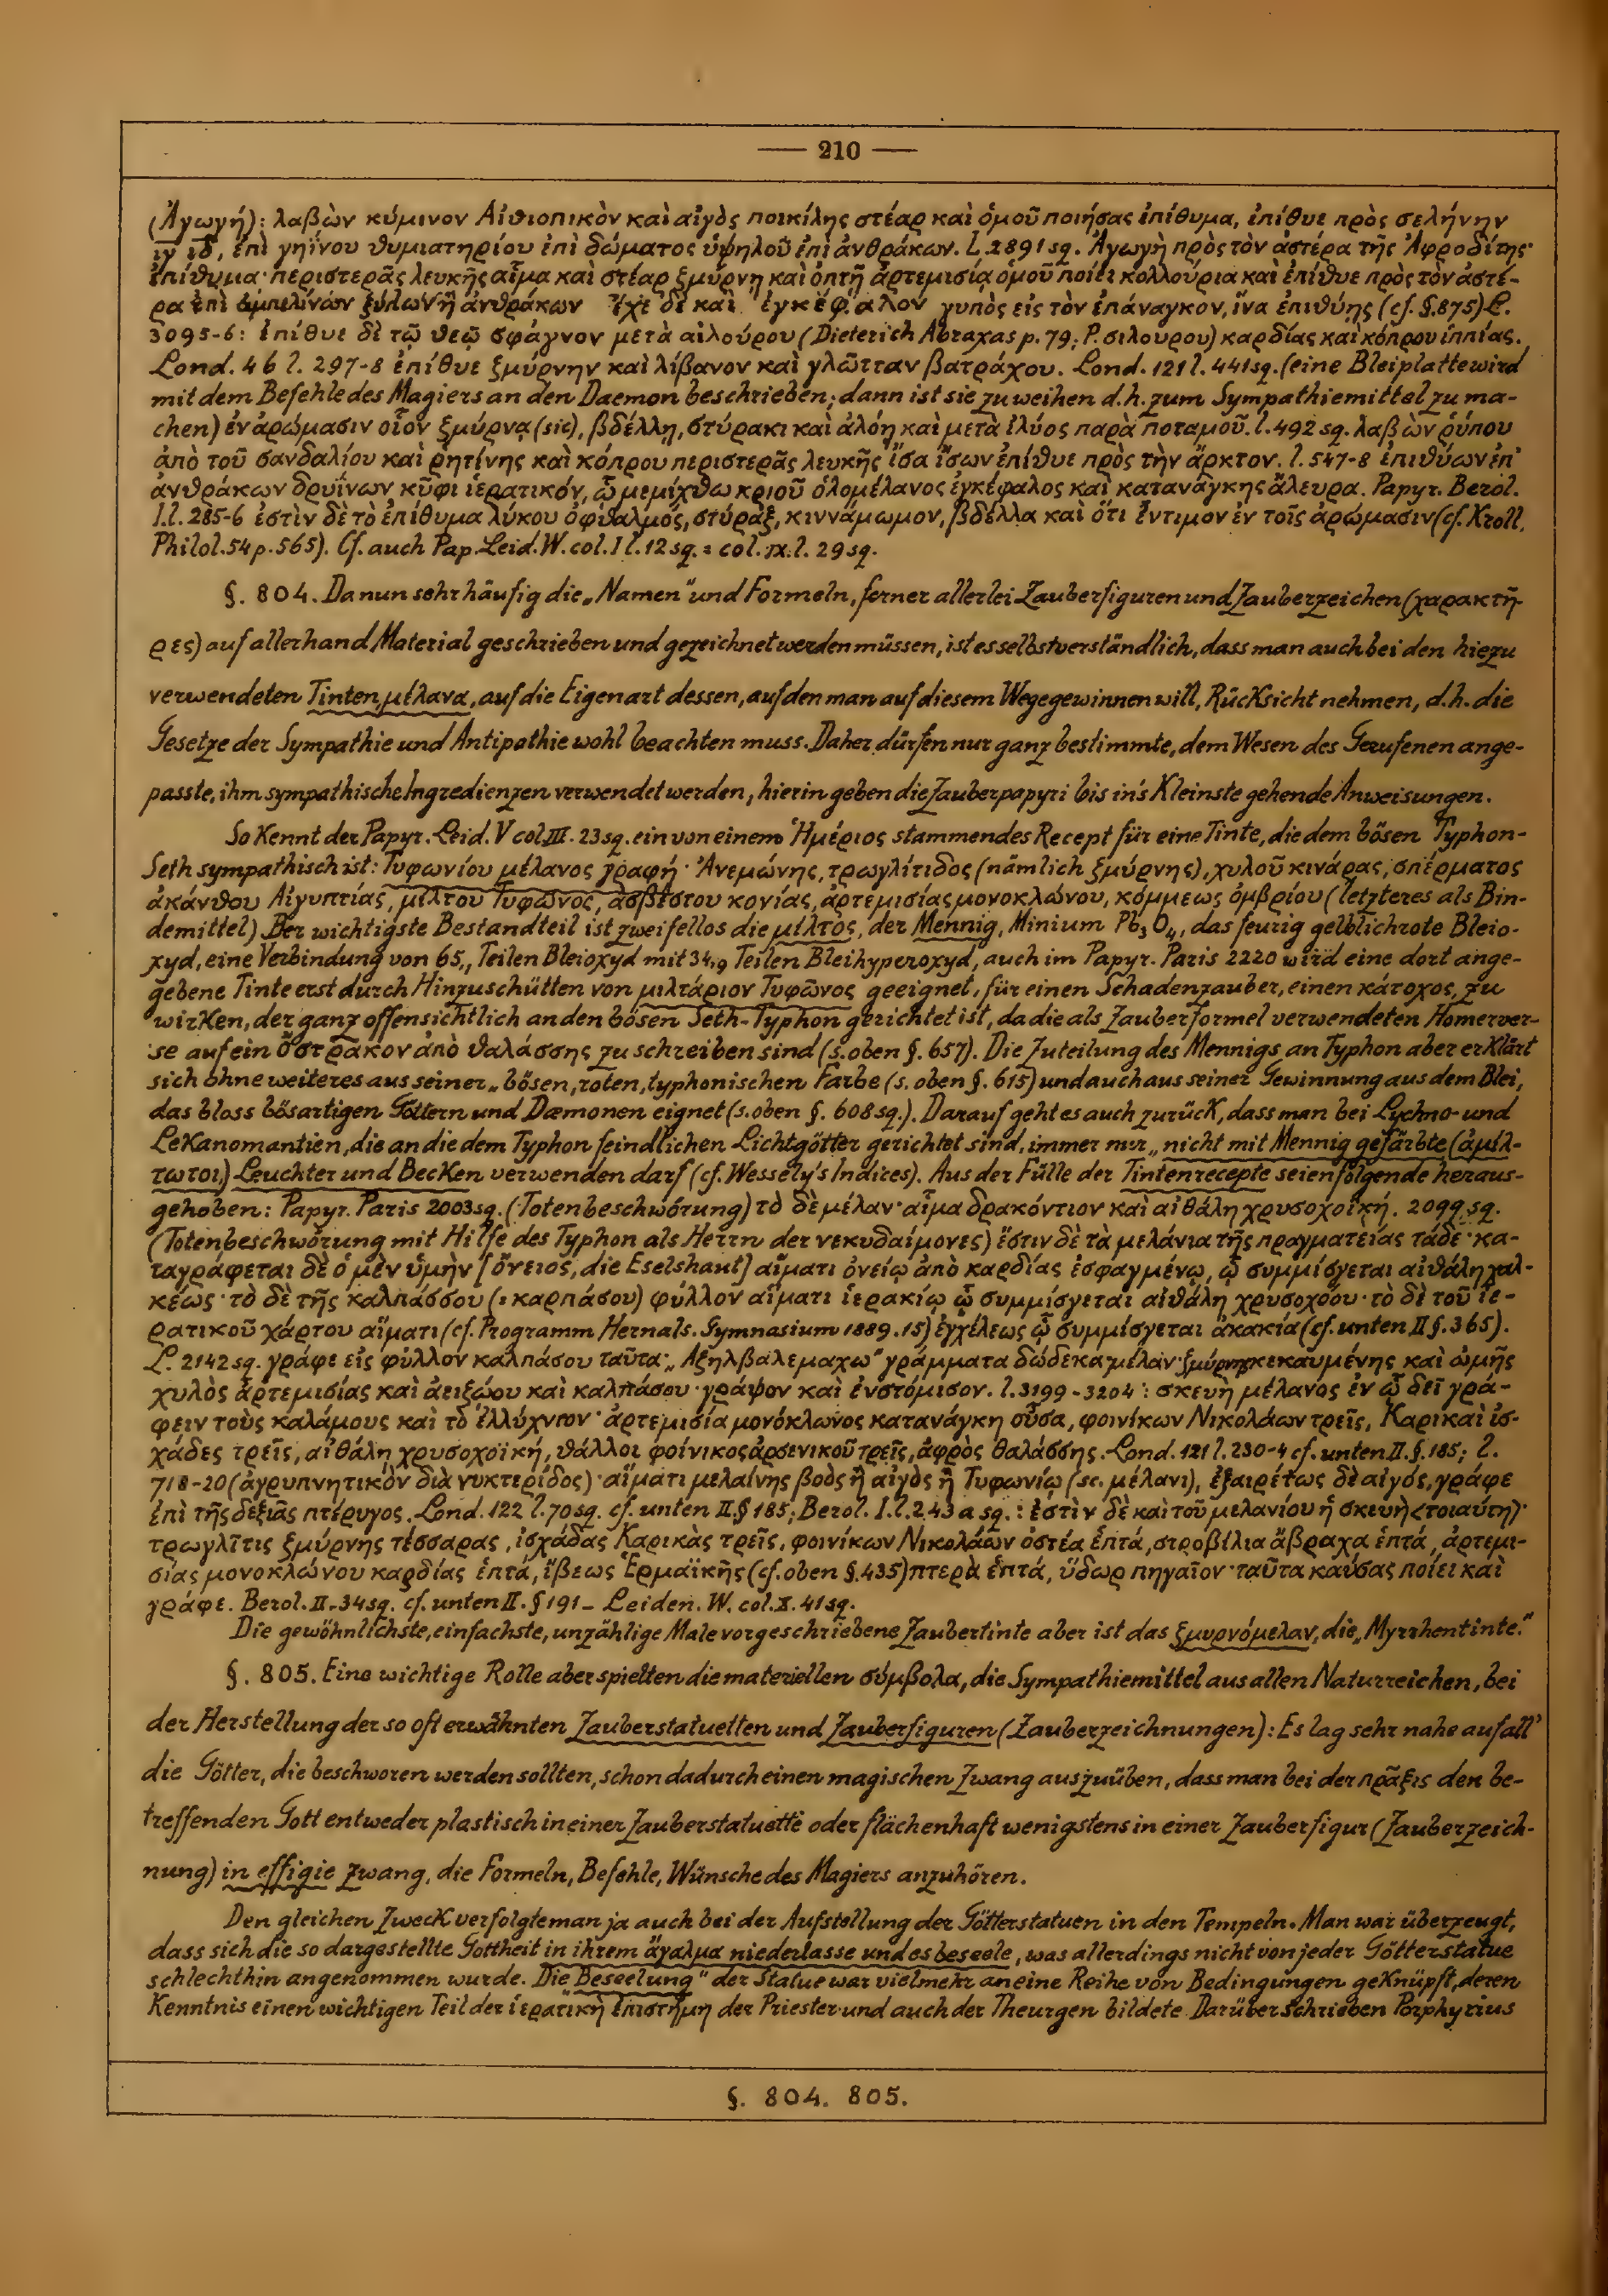 — 210 —
(Ἀγωγή): λαβὼν κύμινον Αἰθιοπικὸν καὶ αἰγὸς ποικίλης στέαρ καὶ ὁμοῦ ποιήσας ἐπίθυμα, ἐπίθυε πρὸς σελήνην
ιγ ιδ, ἐπὶ γηΐνου θυμιατηρίου ἐπὶ δώματος ὑψηλοῦ ἐπὶ ἀνθράκων. L. 2891 sq. Ἀγωγὴ πρὸς τὸν ἀστέρα τῆς Ἀφροδίτης·
ἐπίθυμα· περιστερᾶς λευκῆς αἷμα καὶ στέαρ ξμύρνη καὶ ὀπτῆ ἀρτεμισία ὁμοῦ ποίει κολλούρια καὶ ἐπίθυε πρὸς τὸν ἀστέ-
ρα ἐπὶ ἀμπελίνων ξύλων ἢ ἀνθράκων ἔχε δὲ καὶ ἐγκέφαλον γυπὸς εἰς τὸν ἐπάναγκον, ἵνα ἐπιθύῃς (cf. §. 875) L.
3095-6: ἐπίθυε δὲ τῷ θεῷ σφάγνον μετὰ αἰλούρου (Dieterich Abraxas p. 79; P. σιλούρου) καρδίας καὶ κόπρου ἱππίας.
Lond. 46 l. 297-8 ἐπίθυε ξμύρνην καὶ λίβανον καὶ γλῶτταν βατράχου. Lond. 121 l. 441 sq. (eine Bleiplatte wird
mit dem Befehle des Magiers an den Daemon beschrieben; dann ist sie zu weihen d. h. zum Sympathiemittel zu ma-
chen) ἐν ἀρώμασιν οἷον ξμύρνᾳ (sic), βδέλλῃ, στύρακι καὶ ἀλόῃ καὶ μετὰ ἰλύος παρὰ ποταμοῦ. l. 492 sq. λαβὼν ῥύπου
ἀπὸ τοῦ σανδαλίου καὶ ῥητίνης καὶ κόπρου περιστερᾶς λευκῆς ἴσα ἴσων ἐπίθυε πρὸς τὴν ἄρκτον. l. 547-8 ἐπιθύων ἐπ'
ἀνθράκων δρυΐνων κῦφι ἱερατικόν, ᾧ μεμίχθω κριοῦ ὁλομέλανος ἐγκέφαλος καὶ κατανάγκης ἄλευρα. Papyr. Berol.
I. l. 285-6 ἐστὶν δὲ τὸ ἐπίθυμα λύκου ὀφθαλμός, στύραξ, κιννάμωμον, βδέλλα καὶ ὅτι ἔντιμον ἐν τοῖς ἀρώμασιν (cf. Kroll,
Philol. 54 p. 565). Cf. auch Pap. Leid. W. col. I l. 12 sq. = col. IX. l. 29 sq.
§. 804. Da nun sehr häufig die „Namen" und Formeln, ferner allerlei Zauberfiguren und Zauberzeichen (χαρακτῆ-
ρες) auf allerhand Material geschrieben und gezeichnet werden müssen, ist es selbstverständlich, dass man auch bei den hiezu
verwendeten Tinten, μέλανα, auf die Eigenart dessen, auf den man auf diesem Wege gewinnen will, Rücksicht nehmen, d. h. die
Gesetze der Sympathie und Antipathie wohl beachten muss. Daher dürfen nur ganz bestimmte, dem Wesen des Gerufenen ange-
passte, ihm sympathische Ingredienzen verwendet werden, hierin geben die Zauberpapyri bis in's Kleinste gehende Anweisungen.
So kennt der Papyr. Leid. V col. III. 23 sq. ein von einem Ἡμέριος stammendes Recept für eine Tinte, die dem bösen Typhon-
Seth sympathisch ist: Τυφωνίου μέλανος γραφή· Ἀνεμώνης, τρωγλίτιδος (nämlich ξμύρνης), χυλοῦ κινάρας, σπέρματος
ἀκάνθου Αἰγυπτίας, μίλτου Τυφῶνος, ἀσβέστου κονίας, ἀρτεμισίας μονοκλώνου, κόμμεως ὀμβρίου (letzteres als Bin-
demittel) Der wichtigste Bestandteil ist zweifellos die μίλτος, der Mennig, Minium Pb₃O₄, das feurig gelblichrote Bleio-
xyd, eine Verbindung von 65,₁ Teilen Bleioxyd mit 34,₉ Teilen Bleihyperoxyd, auch im Papyr. Paris 2220 wird eine dort ange-
gebene Tinte erst durch Hinzuschütten von μιλτάριον Τυφῶνος geeignet, für einen Schadenzauber, einen κάτοχος, zu
wirken, der ganz offensichtlich an den bösen Seth-Typhon gerichtet ist, da die als Zauberformel verwendeten Homerver-
se auf ein ὄστρακον ἀπὸ θαλάσσης zu schreiben sind (s. oben §. 657). Die Zuteilung des Mennigs an Typhon aber erklärt
sich ohne weiteres aus seiner „bösen, roten, typhonischen Farbe (s. oben §. 615) und auch aus seiner Gewinnung aus dem Blei,
das bloss bösartigen Göttern und Dæmonen eignet (s. oben §. 608 sq.). Darauf geht es auch zurück, dass man bei Lychno- und
Lekanomantien, die an die dem Typhon feindlichen Lichtgötter gerichtet sind, immer nur „nicht mit Mennig gefärbte (ἀμίλ-
τωτοι) Leuchter und Becken verwenden darf (cf. Wessely's Indices). Aus der Fülle der Tintenrecepte seien folgende heraus-
gehoben: Papyr. Paris 2003 sq. (Totenbeschwörung) τὸ δὲ μέλαν· αἷμα δρακόντιον καὶ αἰθάλη χρυσοχοϊκή. 2099 sq.
(Totenbeschwörung mit Hilfe des Typhon als Herrn der νεκυδαίμονες) ἔστιν δὲ τὰ μελάνια τῆς πραγματείας τάδε· κα-
ταγράφεται δὲ ὁ μὲν ὑμὴν [ὄνειος, die Eselshaut] αἵματι ὀνείῳ ἀπὸ καρδίας ἐσφαγμένῳ, ᾧ συμμίσγεται αἰθάλη χαλ-
κέως· τὸ δὲ τῆς καλπάσσου (= καρπάσου) φύλλον αἵματι ἱερακίῳ ᾧ συμμίσγεται αἰθάλη χρυσοχόου· τὸ δὲ τοῦ ἱε-
ρατικοῦ χάρτου αἵματι (cf. Programm Hernals. Gymnasium 1889. 15) ἐγχέλεως ᾧ συμμίσγεται ἀκακία (cf. unten II §. 365).
L. 2142 sq. γράφε εἰς φύλλον καλπάσου ταῦτα· „Αζηλβαλεμαχω" γράμματα δώδεκα· μέλαν· ξμύρνης κεκαυμένης καὶ ὠμῆς
χυλὸς ἀρτεμισίας καὶ ἀειζώου καὶ καλπάσου· γράψον καὶ ἐνστόμισον. l. 3199-3204: σκευὴ μέλανος ἐν ᾧ δεῖ γρά-
φειν τοὺς καλάμους καὶ τὸ ἐλλύχνιον· ἀρτεμισία μονόκλωνος κατανάγκη οὖσα, φοινίκων Νικολάων τρεῖς, Καρικαὶ ἰσ-
χάδες τρεῖς, αἰθάλη χρυσοχοϊκή, θάλλοι φοίνικος ἀρσενικοῦ τρεῖς, ἀφρὸς θαλάσσης. Lond. 121 l. 230-4 cf. unten II. §. 185; l.
718-20 (ἀγρυπνητικὸν διὰ νυκτερίδος)· αἵματι μελαίνης βοὸς ἢ αἰγὸς ἢ Τυφωνίῳ (sc. μέλανι), ἐξαιρέτως δὲ αἰγός, γράφε
ἐπὶ τῆς δεξιᾶς πτέρυγος. Lond. 122 l. 70 sq. cf. unten II. § 185; Berol. I. l. 243 a sq.: ἐστὶν δὲ καὶ τοῦ μελανίου ἡ σκευὴ <τοιαύτη>·
τρωγλῖτις ξμύρνης τέσσαρας, ἰσχάδας Καρικὰς τρεῖς, φοινίκων Νικολάων ὀστέα ἑπτά, στροβίλια ἄβραχα ἑπτά, ἀρτεμι-
σίας μονοκλώνου καρδίας ἑπτά, ἴβεως Ἑρμαϊκῆς (cf. oben §. 435) πτερὰ ἑπτά, ὕδωρ πηγαῖον· ταῦτα καύσας ποίει καὶ
γράφε. Berol. II. 34 sq. cf. unten II. § 191 – Leiden. W. col. X. 41 sq.
Die gewöhnlichste, einfachste, unzählige Male vorgeschriebene Zaubertinte aber ist das ξμυρνόμελαν, die „Myrrhentinte."
§. 805. Eine wichtige Rolle aber spielten die materiellen σύμβολα, die Sympathiemittel aus allen Naturreichen, bei
der Herstellung der so oft erwähnten Zauberstatuetten und Zauberfiguren (Zauberzeichnungen): Es lag sehr nahe auf all'
die Götter, die beschworen werden sollten, schon dadurch einen magischen Zwang auszuüben, dass man bei der πρᾶξις den be-
treffenden Gott entweder plastisch in einer Zauberstatuette oder flächenhaft wenigstens in einer Zauberfigur (Zauberzeich-
nung) in effigie zwang, die Formeln, Befehle, Wünsche des Magiers anzuhören.
Den gleichen Zweck verfolgte man ja auch bei der Aufstellung der Götterstatuen in den Tempeln. Man war überzeugt,
dass sich die so dargestellte Gottheit in ihrem ἄγαλμα niederlasse und es beseele, was allerdings nicht von jeder Götterstatue
schlechthin angenommen wurde. Die „Beseelung" der Statue war vielmehr an eine Reihe von Bedingungen geknüpft, deren
Kenntnis einen wichtigen Teil der ἱερατικὴ ἐπιστήμη der Priester und auch der Theurgen bildete. Darüber schrieben Porphyrius
§. 804. 805.